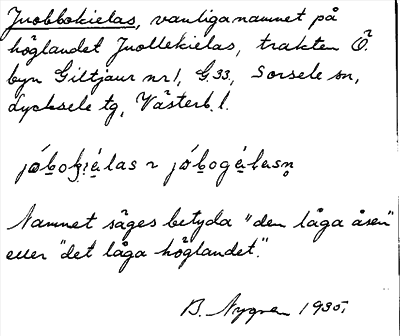 Juobbokielas, vanliga namnet på
höglandet Juollekielas, trakten Ö.
byn Giltjaur nr 1, G.33, Sorsele sn,
Lycksele tg, Västerb. l.
Namnet säges betyda "den låga åsen"
eller "det låga höglandet."
B. Nygren 1935.